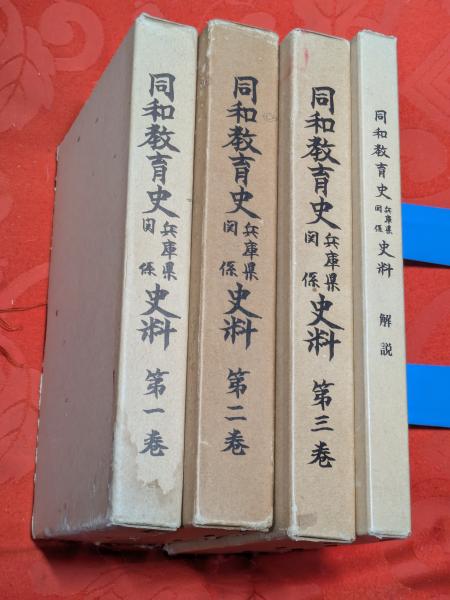 同和教育史兵庫県関係史料 第一巻
同和教育史兵庫県関係史料 第二巻
同和教育史兵庫県関係史料 第三巻
同和教育史兵庫県関係史料 解説